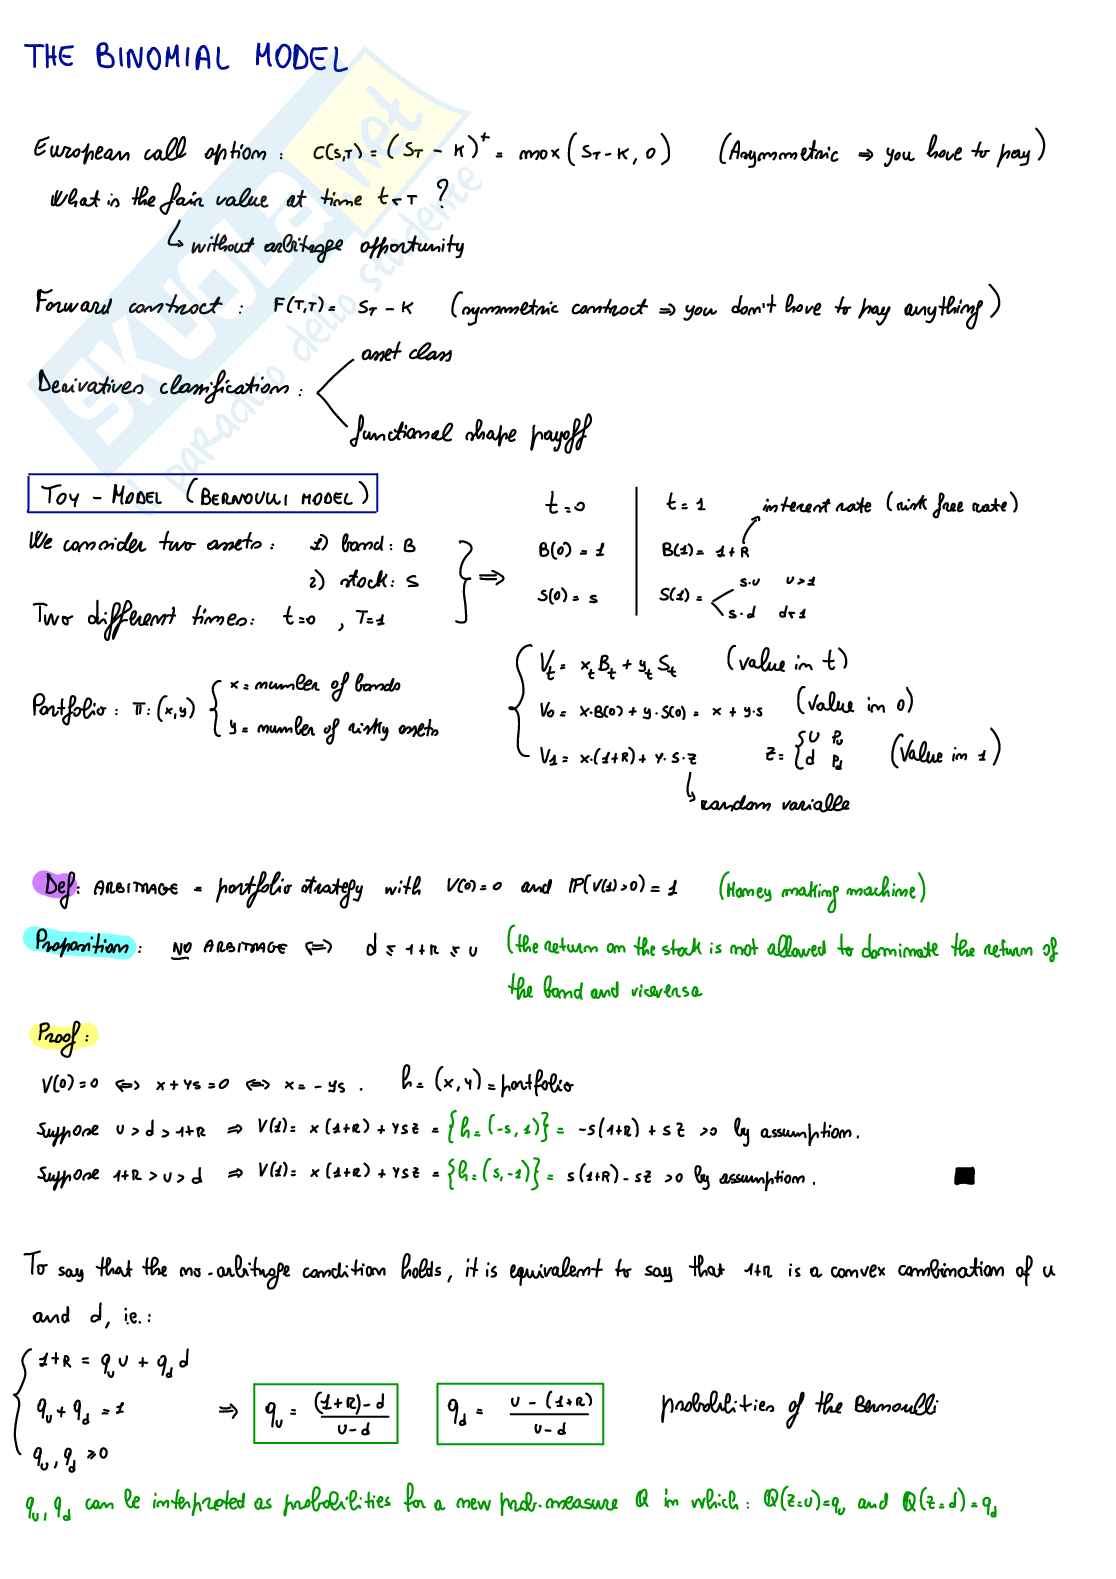 THE BINOMIAL MODEL
European call option : C(S,T) = (S_T - K)^+ = max (S_T - K, 0) (Asymmetric ⇒ you have to pay)
What is the fair value at time t<T ?
↳ without arbitrage opportunity
Forward contract : F(T,T) = S_T - K (symmetric contract ⇒ you don't have to pay anything)
asset class
Derivatives classification :
functional shape payoff
TOY - MODEL (BERNOULLI MODEL)
t=0 | t=1 interest rate (risk free rate)
We consider two assets : 1) bond : B
B(0) = 1 | B(1) = 1+R
2) stock : S ⇒ S(0) = s | S(1) = s·u u>1
s·d d<1
Two different times : t=0 , T=1
Portfolio : π : (x,y) { x = number of bonds
y = number of risky assets
V_t = x_t B_t + y_t S_t (value in t)
V_0 = x·B(0) + y·S(0) = x + y·s (value in 0)
V_1 = x·(1+R) + y·s·z z = { u p_u
d p_d (value in 1)
↳ random variable
Def : ARBITRAGE = portfolio strategy with V(0)=0 and IP(V(1)>0) = 1 (Money making machine)
Proposition : NO ARBITRAGE ⇔ d ≤ 1+R ≤ u (the return on the stock is not allowed to dominate the return of
the bond and viceversa
Proof :
V(0)=0 ⇔ x + ys = 0 ⇔ x = - ys . h = (x,y) = portfolio
Suppose u > d > 1+R ⇒ V(1) = x (1+R) + ysz = {h = (-s, 1)} = -s(1+R) + sz >0 by assumption.
Suppose 1+R > u > d ⇒ V(1) = x (1+R) + ysz = {h = (s, -1)} = s(1+R) - sz >0 by assumption .
To say that the no-arbitrage condition holds, it is equivalent to say that 1+R is a convex combination of u
and d, i.e. :
1+R = q_u u + q_d d
q_u + q_d = 1 ⇒ q_u = ((1+R) - d)/(u - d) q_d = (u - (1+R))/(u - d) probabilities of the Bernoulli
q_u, q_d ≥ 0
q_u, q_d can be interpreted as probabilities for a new prob. measure Q in which : Q(z=u) = q_u and Q(z=d) = q_d
SKUOLA.net
il paradiso dello studente